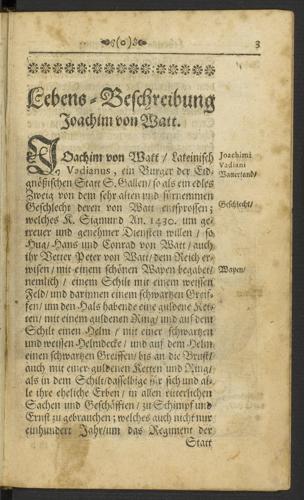 (o) 3
Lebens-Beschreibung
Joachim von Watt.
JOachim von Watt / Lateinisch
Vadianus, ein Burger der Eid-
gnößischen Statt S. Gallen / so als ein edles
Zweig von dem sehr alten und fürnemmen
Geschlecht deren von Watt entsprossen;
welches K. Sigmund An. 1430. um ge-
treuer und genehmer Diensten willen / so
Hug / Hans und Conrad von Watt / auch
ihr Vetter Peter von Watt / dem Reich er-
wisen / mit einem schönen Wapen begabet /
nemlich / einem Schilt mit einem weissen
Feld / und darinnen einem schwartzen Greif-
fen / um den Hals habende eine guldene Ket-
ten / mit einem guldenen Ring / und auf dem
Schilt einen Helm / mit einer schwartzen
und weissen Helmdecke / und auf dem Helm
einen schwartzen Greiffen / bis an die Brust /
auch mit einer guldenen Ketten und Ring /
als in dem Schilt / dasselbige für sich und al-
le ihre eheliche Erben / in allen ritterlichen
Sachen und Geschäfften / zu Schimpf und
Ernst zu gebrauchen; welches auch nicht nur
einhundert Jahr / um das Regiment der
Statt
Joachimi
Vadiani
Vatterland /
Geschlecht /
Wapen /